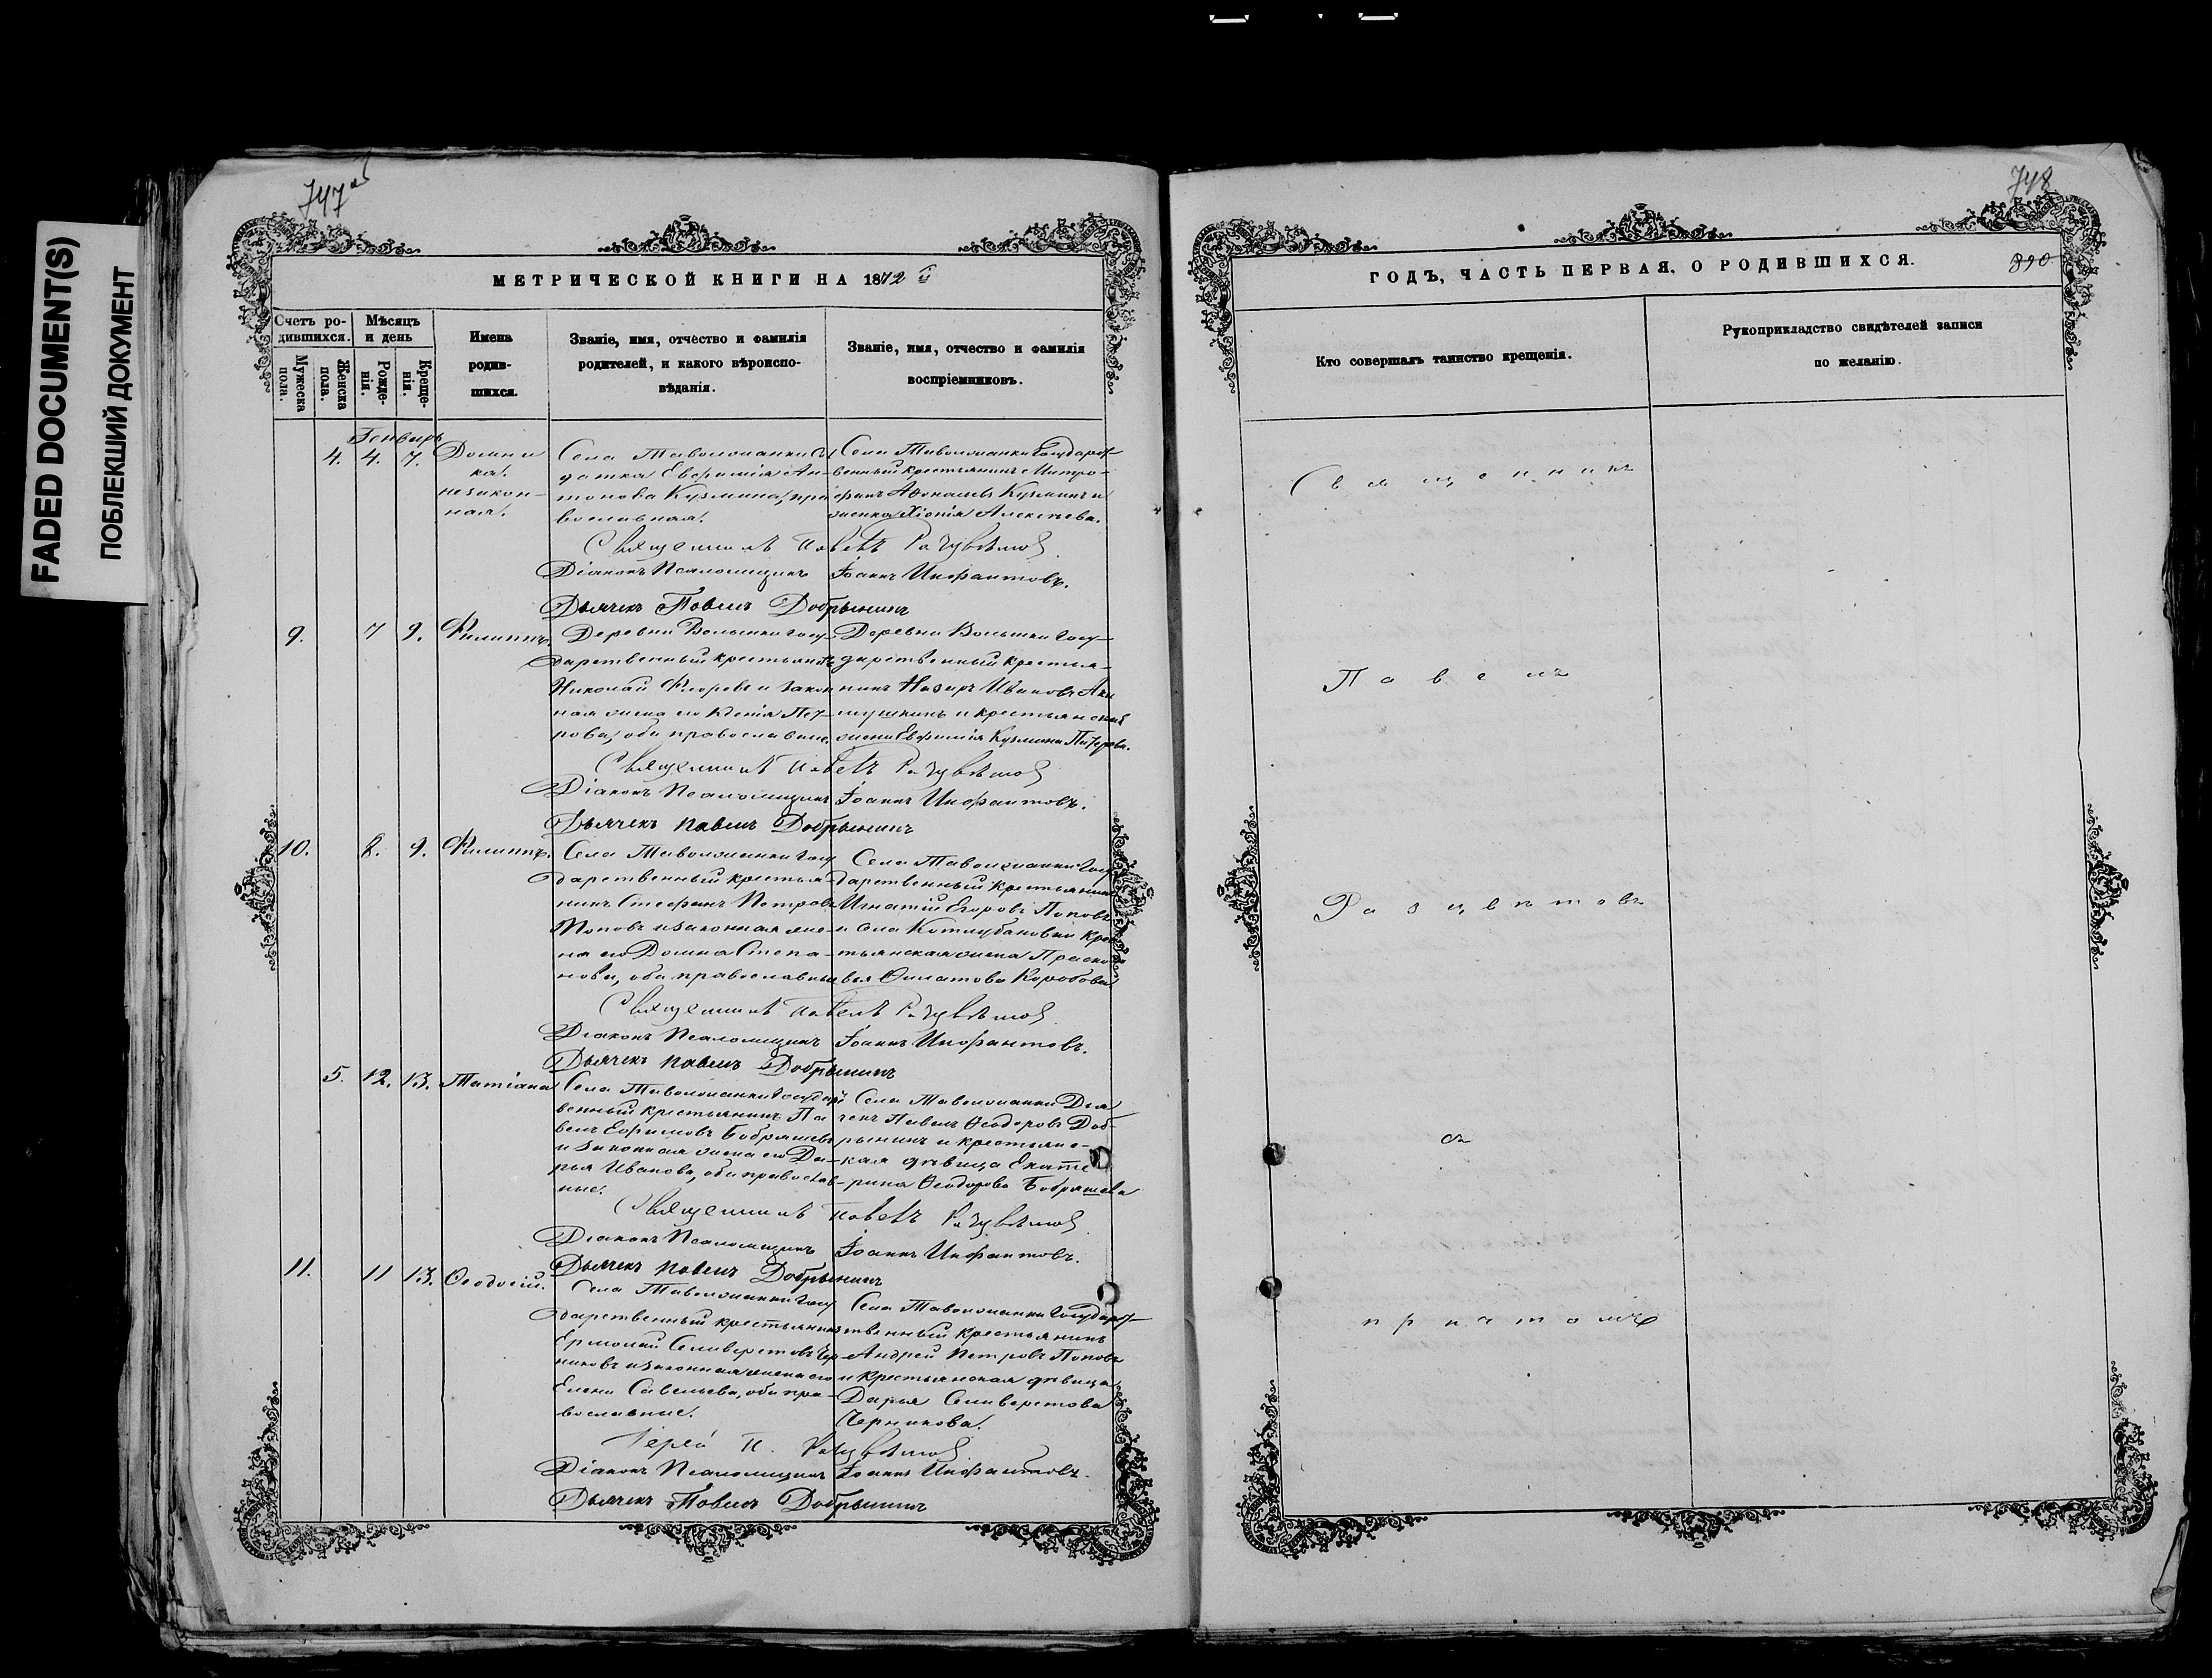 FADED DOCUMENT(S)
ПОБЛЕКШИЙ ДОКУМЕНТ
747
МЕТРИЧЕСКОЙ КНИГИ НА 1872
Счетъ родившихся.
Мужеска пола.
Женска пола.
Мѣсяцъ и день
Рожденія.
Крещенія.
Имена родившихся.
Званіе, имя, отчество и фамилія
родителей, и какого вѣроиспо-
вѣданія.
Званіе, имя, отчество и фамилія
воспріемниковъ.
Генварь
4. 4. 7.
Домни
ка.
незакон-
ная.
Села Таволжанки Сол
датка Евфимія Ан-
тонова Кузмина, пра
вославная.
Села Таволжанки Государст
венный крестьянинъ Митро-
фанъ Кузминъ и
женка Хіонія Алексѣева.
Священникъ Павелъ Разцвѣтов
Діаконъ Псаломщикъ Іоаннъ Инфантовъ.
Дьячекъ Павелъ Добрынинъ
9. 7 9. Филиппъ.
Деревни Вольники госу-
дарственный крестьянинъ
Николай Флоровъ и закон
ная жена его Ксенія Пет-
рова, оба православные.
Деревни Вольники госу-
дарственный крестья-
нинъ Назаръ Ивановъ
и крестьянская
жена Евфимія Кузмина
Священникъ Павелъ Разцвѣтов
Діаконъ Псаломщикъ Іоаннъ Инфантовъ.
Дьячекъ Павелъ Добрынинъ
10. 8. 9. Филиппъ.
Села Таволжанки госу
дарственный крестья-
нинъ Стефанъ Петровъ
Поповъ и законная же-
на его Домна Степа-
нова, оба православные
Села Таволжанки Госу
дарственный крестьянинъ
Игнатій Егоровъ Поповъ
и села Котлубановки крес
тьянская жена Праско
вья Филатова Коробова
Священникъ Павелъ Разцвѣтов
Діаконъ Псаломщикъ Іоаннъ Инфантовъ.
Дьячекъ Павелъ Добрынинъ
5. 12. 13. Татіана
Села Таволжанки Государст
венный крестьянинъ Па
велъ Ефимовъ Бобряшевъ
и законная жена его Да-
рья Иванова, оба православ-
ные.
Села Таволжанки Дья
чекъ Павелъ Ѳеодоровъ Доб-
рынинъ и крестьянс-
кая дѣвица Екате
рина Ѳеодорова Бобряшева
Священникъ Павелъ Разцвѣтов
Діаконъ Псаломщикъ Іоаннъ Инфантовъ.
Дьячекъ Павелъ Добрынинъ
11. 11 13. Ѳеодосій.
Села Таволжанки госу
дарственный крестьянинъ
Ермолай Селиверстовъ Чер-
никовъ и законная жена его
Елена Савельева, оба пра-
вославные.
Села Таволжанки Государст
твенный крестьянинъ
Андрей Петровъ Поповъ
и крестьянская дѣвица
Дарья Селиверстова
Черникова.
Іерей П. Разцвѣтов
Діаконъ Псаломщикъ Іоаннъ Инфантовъ.
Дьячекъ Павелъ Добрынинъ
748
ГОДЪ, ЧАСТЬ ПЕРВАЯ, О РОДИВШИХСЯ.
390
Кто совершалъ таинство крещенія.
Рукоприкладство свидѣтелей записи
по желанію.
Священникъ
Павелъ
Разцвѣтовъ
съ
причтомъ